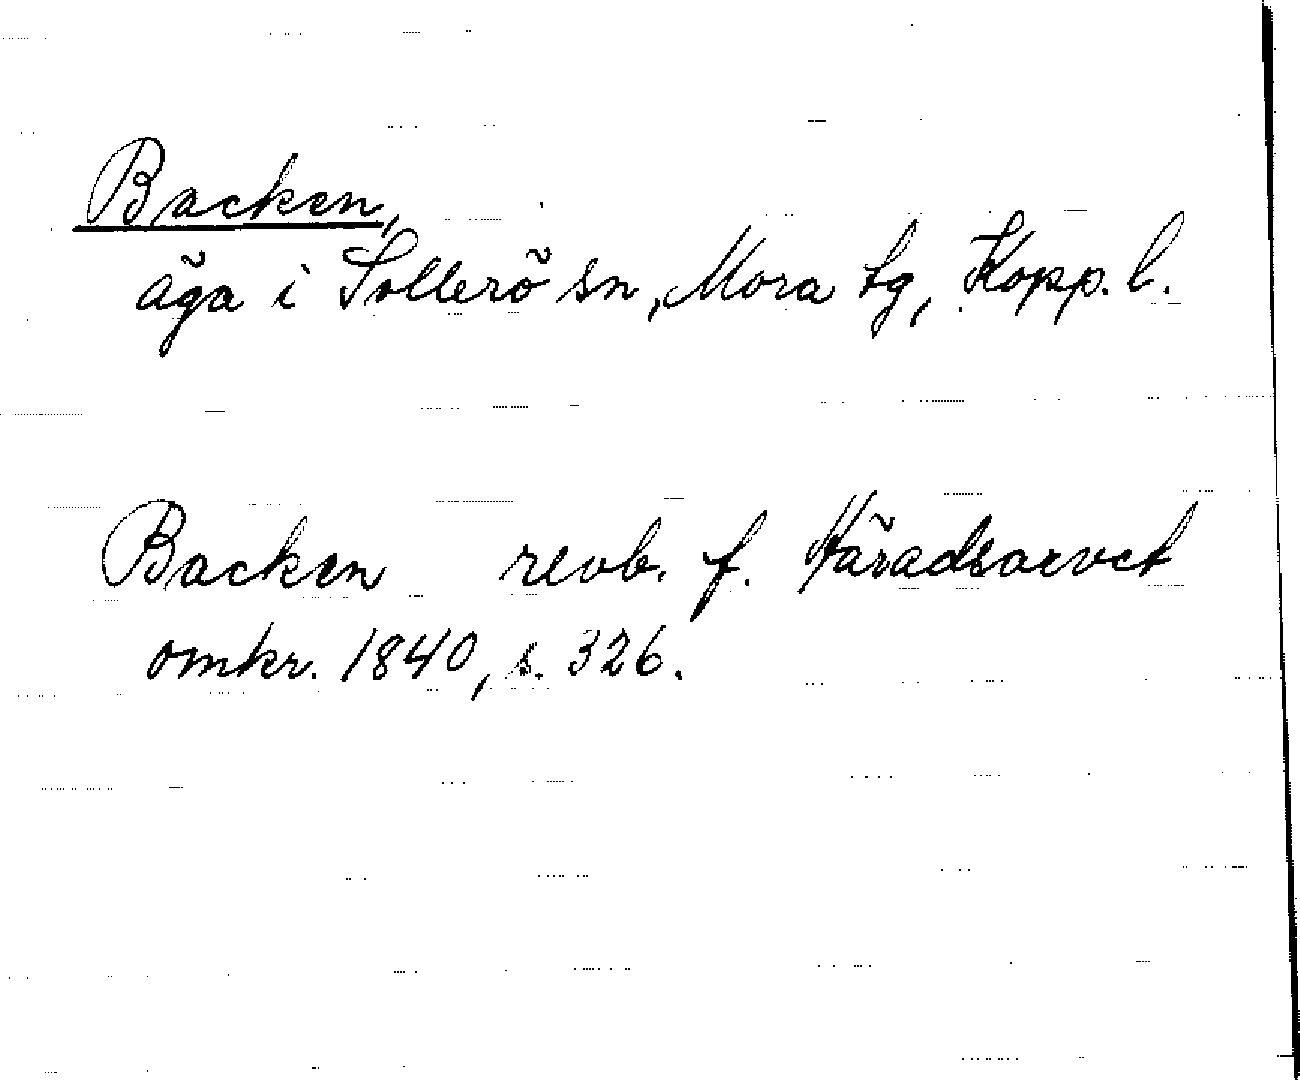 Backen,
äga i Sollerö sn, Mora tg, Kopp. l.
Backen revb. f. Häradsarvet
omkr. 1840, s. 326.